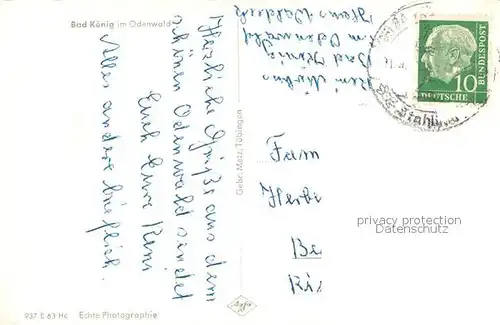 Bad König im Odenwald
Herzliche Grüße aus dem
schönen Odenwald sendet
Euch Eure Reni
Alles andere brieflich.
Bad König
im Odenwald
Haus
Gebr. Metz, Tübingen
10
DEUTSCHE
BUNDESPOST
Stahl
Fam
Herbe
Be
privacy protection
Datenschutz
Agfa
937 E 63 Hc Echte Photographie